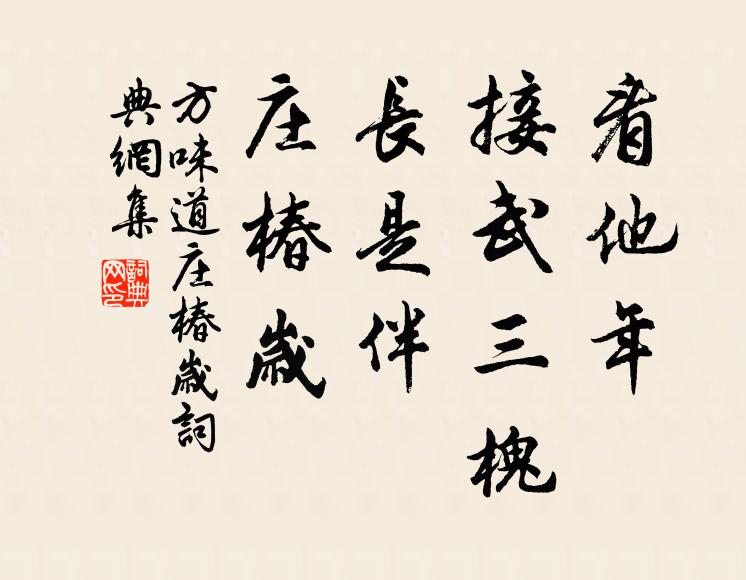 看他年
接武三槐
長是伴
庄椿歲
方味道庄椿歲詞
典網集
詞典網印